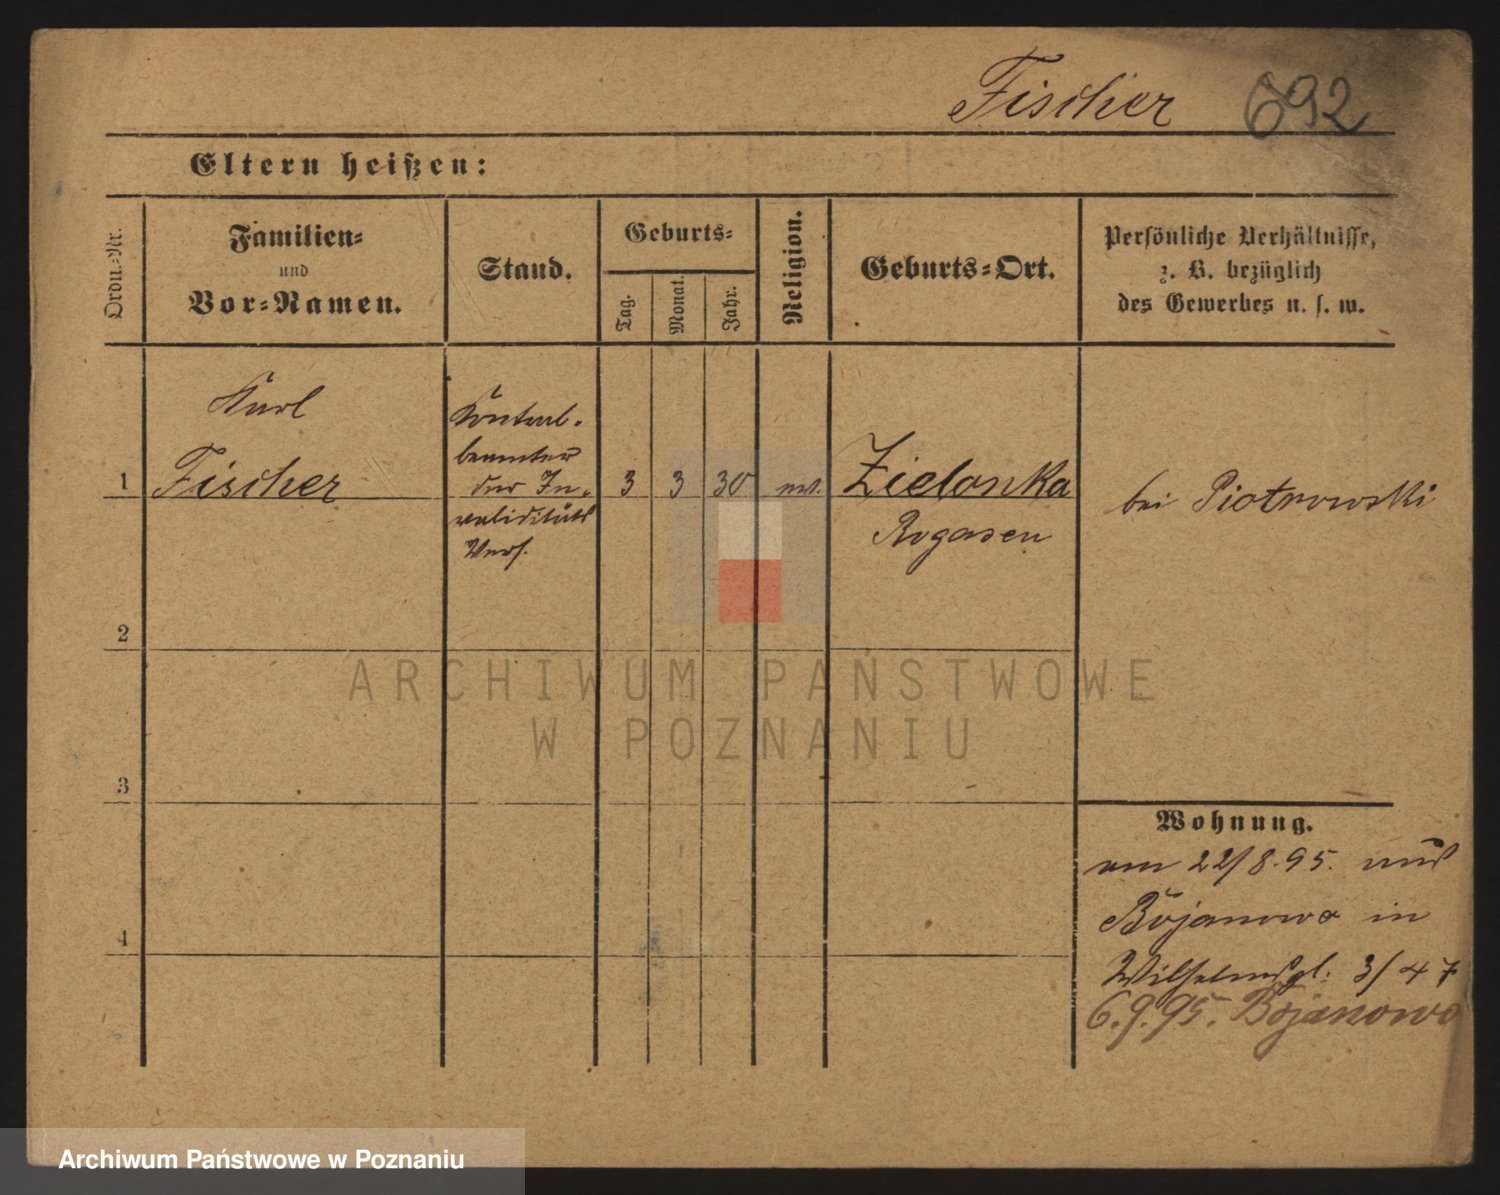 Fischer 692
Eltern heißen:
Ordn.-Nr.
Familien-
und
Vor-Namen.
Stand.
Geburts-
Tag.
Monat.
Jahr.
Religion.
Geburts-Ort.
Persönliche Verhältnisse,
z. B. bezüglich
des Gewerbes u. s. w.
Karl
1 Fischer
Kontrol-
beamter
der In-
validitäts
Vers.
3 3 30 ev.
Zielonka
Rogasen
bei Piotrowski
2
3
4
Wohnung.
am 22/8.95. aus
Bojanowo in
Wilhelmspl. 3/47
6.9.95. Bojanowo
ARCHIWUM PAŃSTWOWE
W POZNANIU
Archiwum Państwowe w Poznaniu